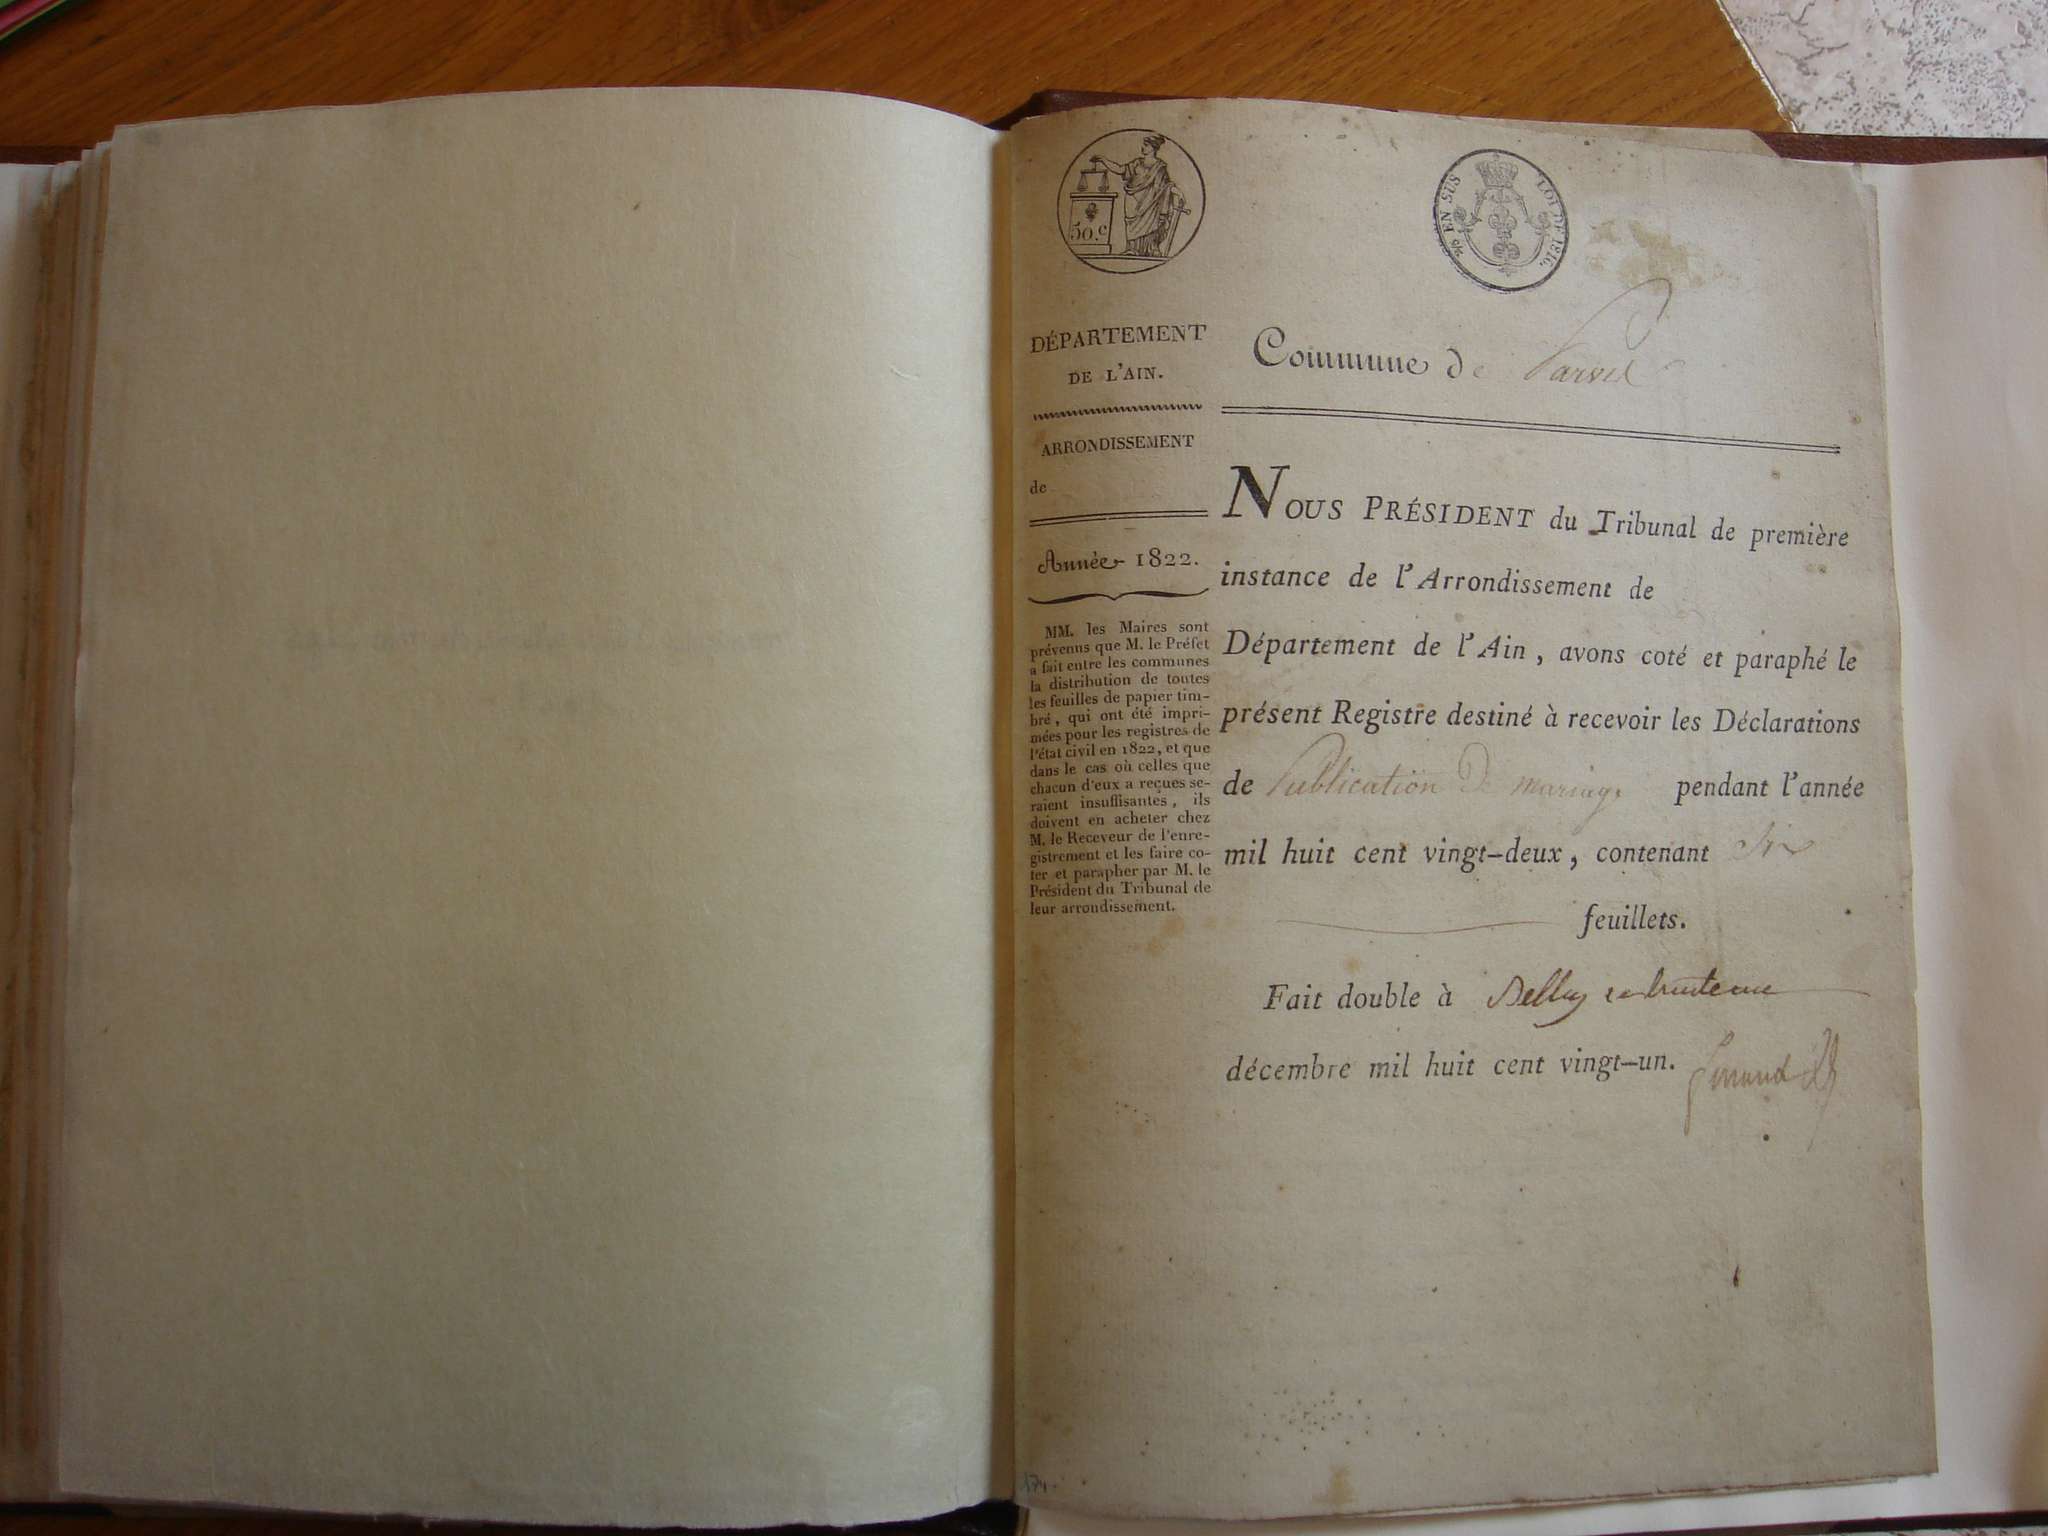 50.c
EN SUS
LOI DE 1816.
DÉPARTEMENT
DE L'AIN.
ARRONDISSEMENT
de
Année 1822.
MM. les Maires sont
prévenus que M. le Préfet
a fait entre les communes
la distribution de toutes
les feuilles de papier tim-
bré, qui ont été impri-
mées pour les registres de
l'état civil en 1822, et que
dans le cas où celles que
chacun d'eux a reçues se-
raient insuffisantes, ils
doivent en acheter chez
M. le Receveur de l'enre-
gistrement et les faire co-
ter et parapher par M. le
Président du Tribunal de
leur arrondissement.
Commune de Parves
NOUS PRÉSIDENT du Tribunal de première
instance de l'Arrondissement de
Département de l'Ain, avons coté et paraphé le
présent Registre destiné à recevoir les Déclarations
de Publication De mariage pendant l'année
mil huit cent vingt-deux, contenant Six
feuillets.
Fait double à Belley
décembre mil huit cent vingt-un.
174.